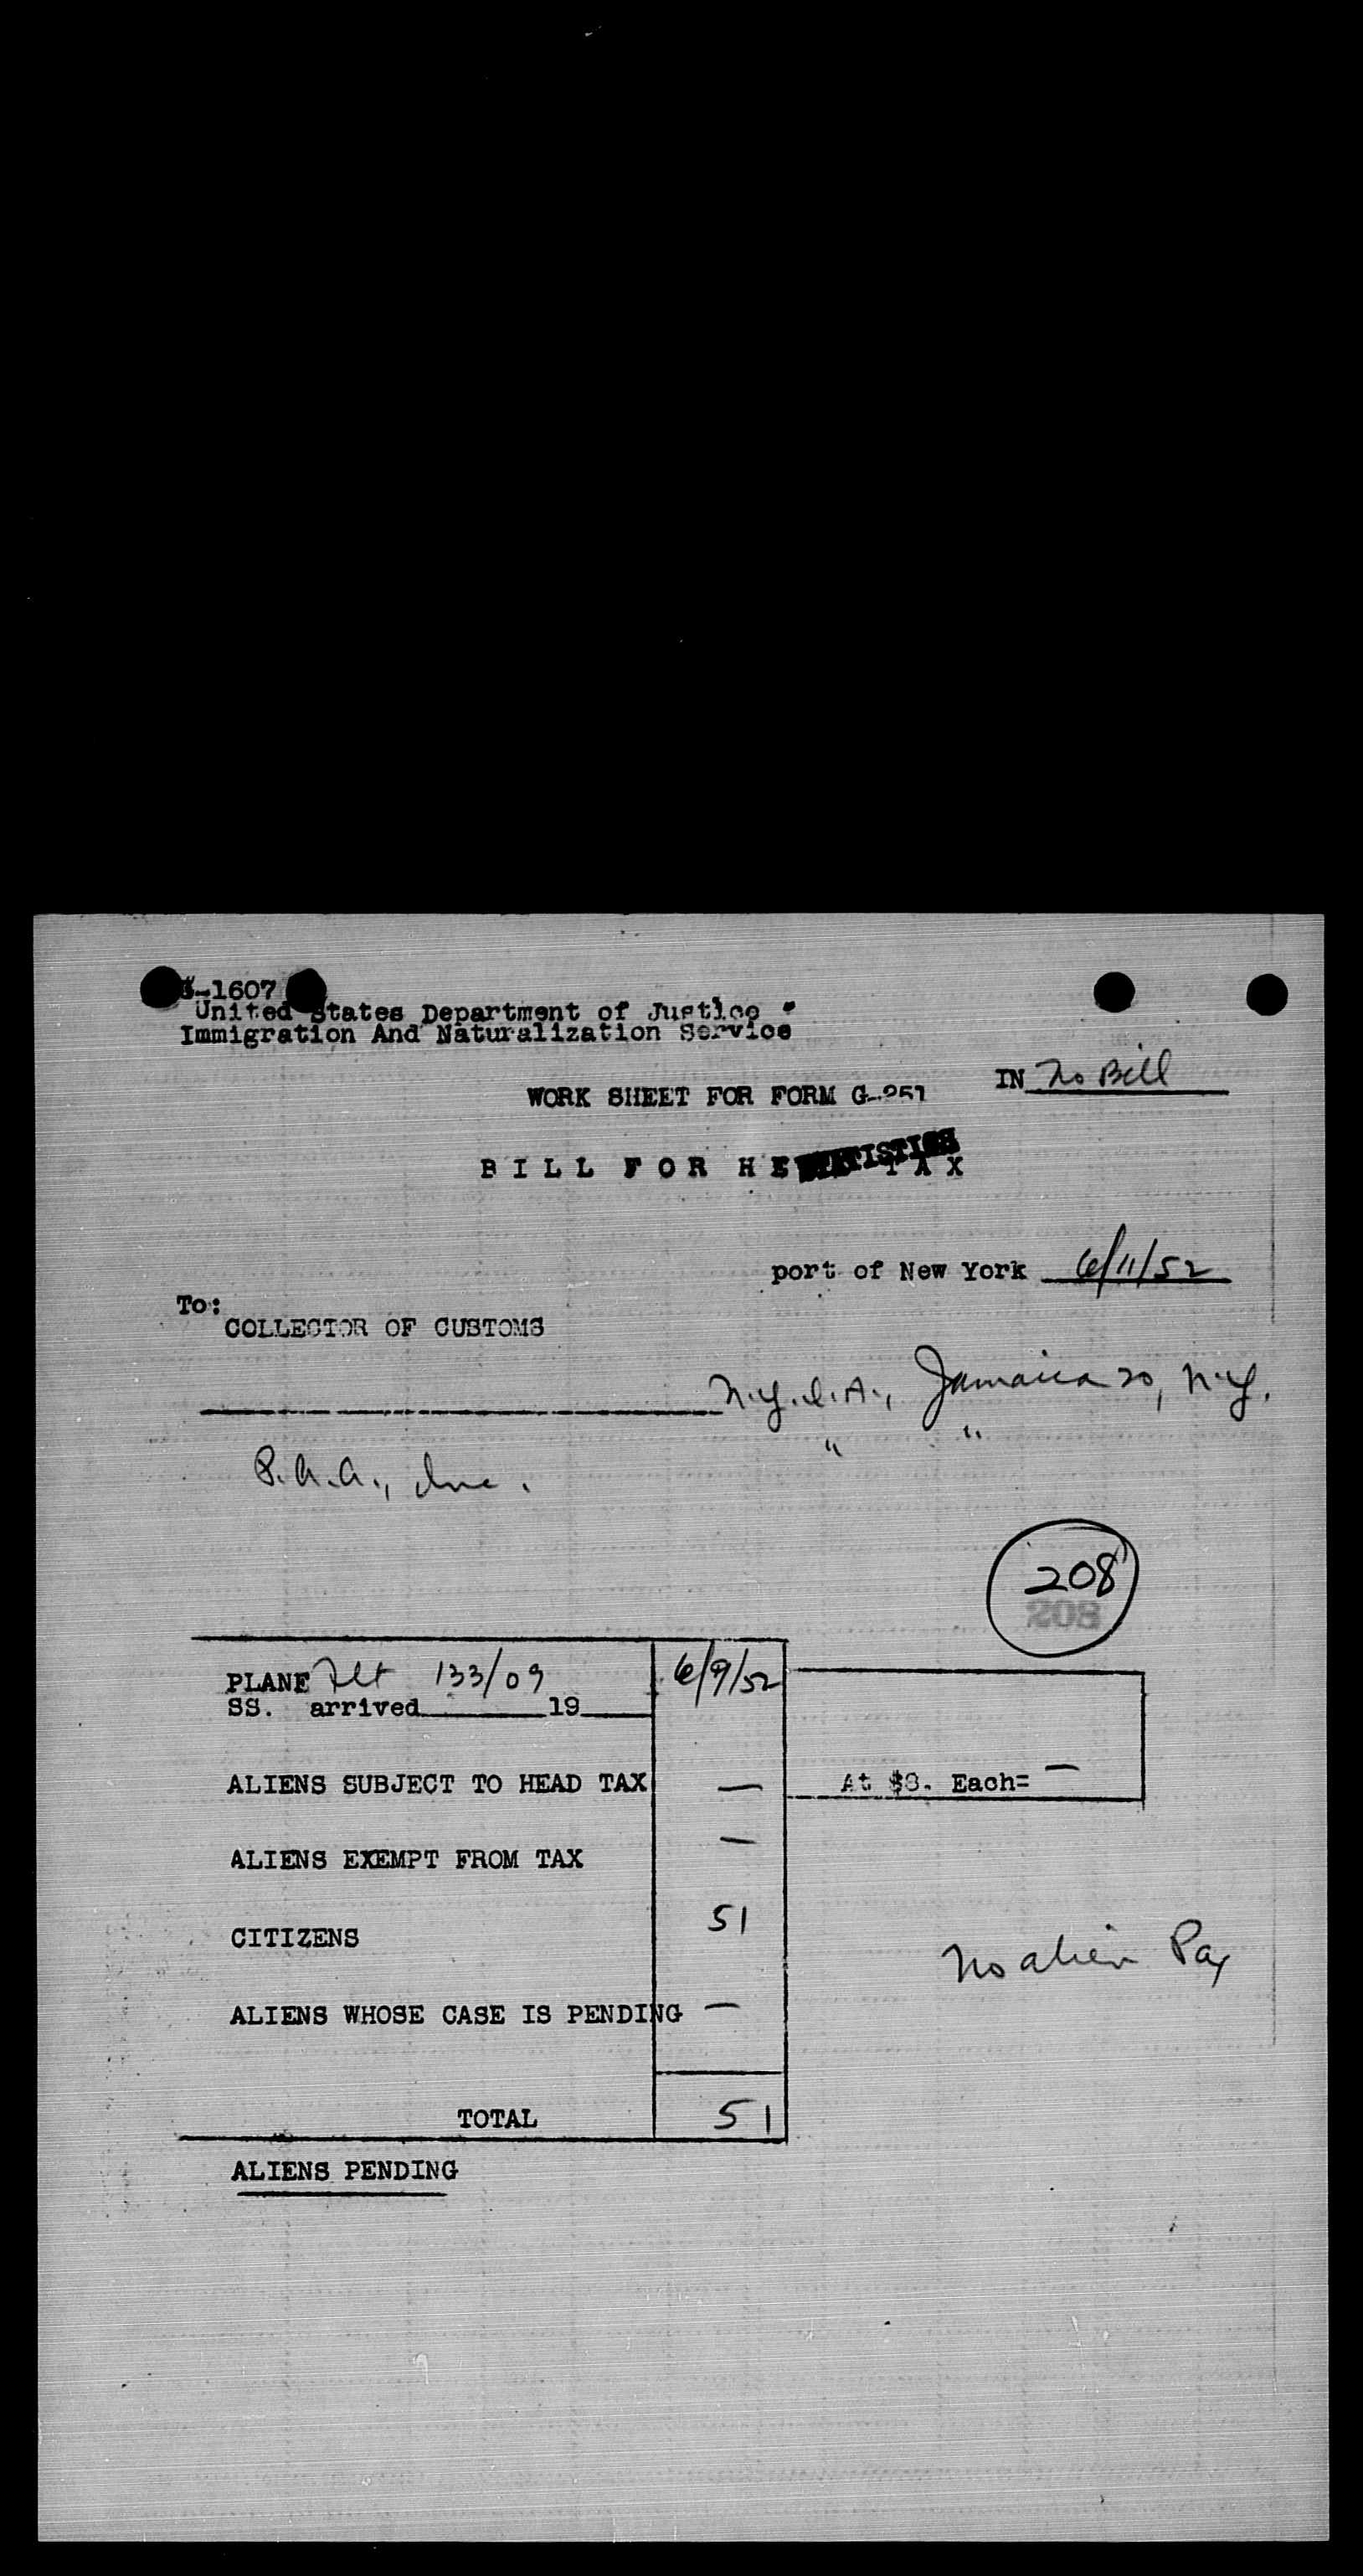 -1607
United States Department of Justice
Immigration And Naturalization Service
IN No Bill
WORK SHEET FOR FORM G-251
BILL FOR HE TAX
STATISTICS
port of New York 6/11/52
To:
COLLECTOR OF CUSTOMS
N.Y.I.A., Jamaica 20, N.Y.
P.A.A., Inc. " "
208
208
PLANE Flt 133/09 6/9/52
SS. arrived 19
ALIENS SUBJECT TO HEAD TAX — At $8. Each= —
ALIENS EXEMPT FROM TAX —
CITIZENS 51
No alien Pax
ALIENS WHOSE CASE IS PENDING —
TOTAL 51
ALIENS PENDING